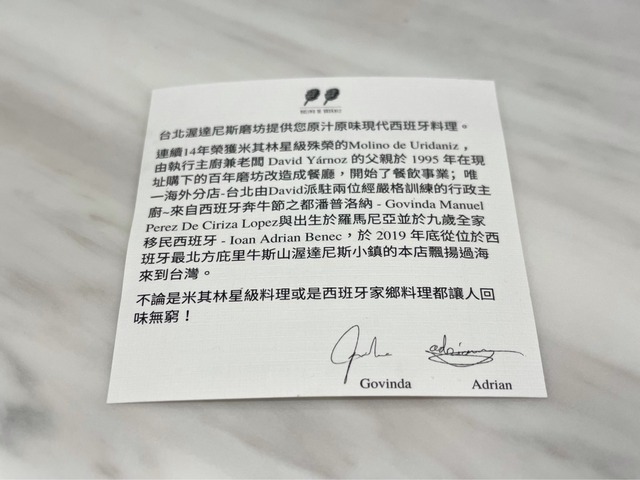 台北渥達尼斯磨坊提供您原汁原味現代西班牙料理。
連續14年榮獲米其林星級殊榮的Molino de Uridaniz，
由執行主廚兼老闆 David Yárnoz 的父親於 1995 年在現
址購下的百年磨坊改造成餐廳，開始了餐飲事業；唯
一海外分店-台北由David派駐兩位經嚴格訓練的行政主
廚~來自西班牙奔牛節之都潘普洛納 - Govinda Manuel
Perez De Ciriza Lopez與出生於羅馬尼亞並於九歲全家
移民西班牙 - Ioan Adrian Benec，於 2019 年底從位於西
班牙最北方庇里牛斯山渥達尼斯小鎮的本店飄揚過海
來到台灣。
不論是米其林星級料理或是西班牙家鄉料理都讓人回
味無窮！
Govinda Adrian